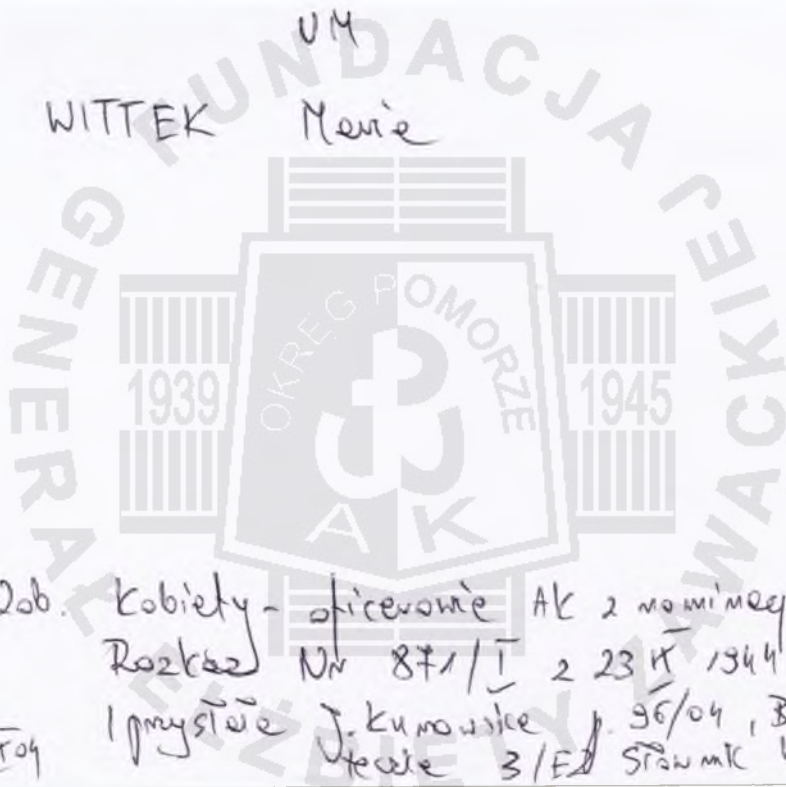 VM
WITTEK Maria
FUNDACJA
GENERAŁ ELŻBIETY ZAWACKIEJ
OKRĘG POMORZE
1939
1945
AK
Zob. Kobiety - oficerowie AK z nominacj
Rozkaz Nr 871/I z 23 IX 1944
/przysłała J. Kunowska p. 96/04, B
teczka 3/EZ Słownik